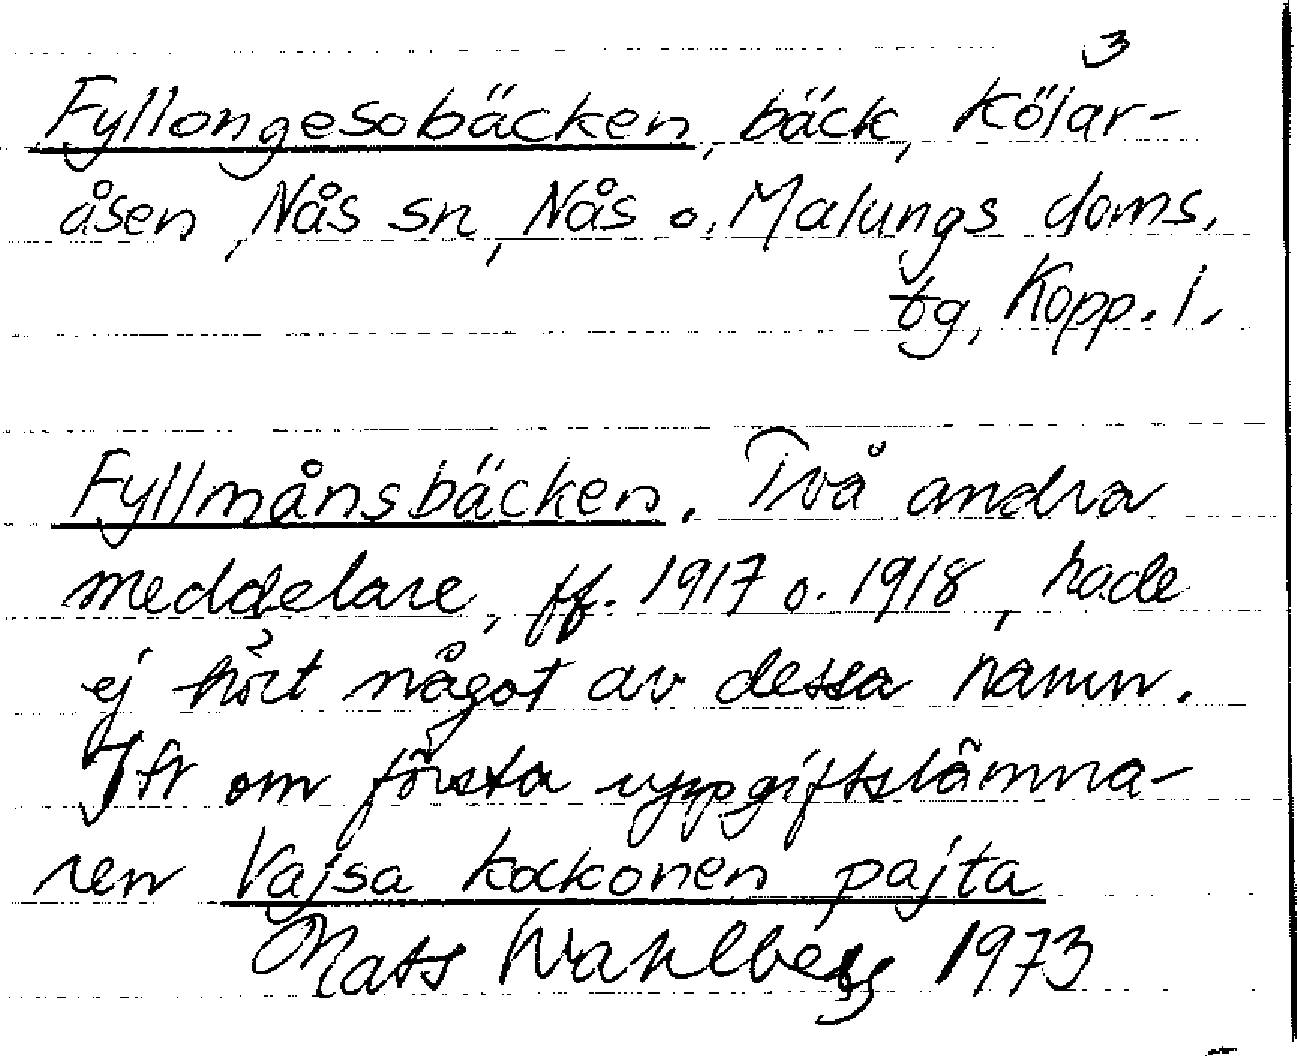 3
Fyllongesobäcken, bäck, Köjar-
åsen, Nås sn, Nås o. Malungs doms.
tg, Kopp. l.
Fyllmånsbäcken. Två andra
meddelare, ff. 1917 o. 1918, hade
ej hört något av dessa namn.
Jfr om första uppgiftslämna-
ren Vajsa kokkonen pajta
Mats Wahlberg 1973